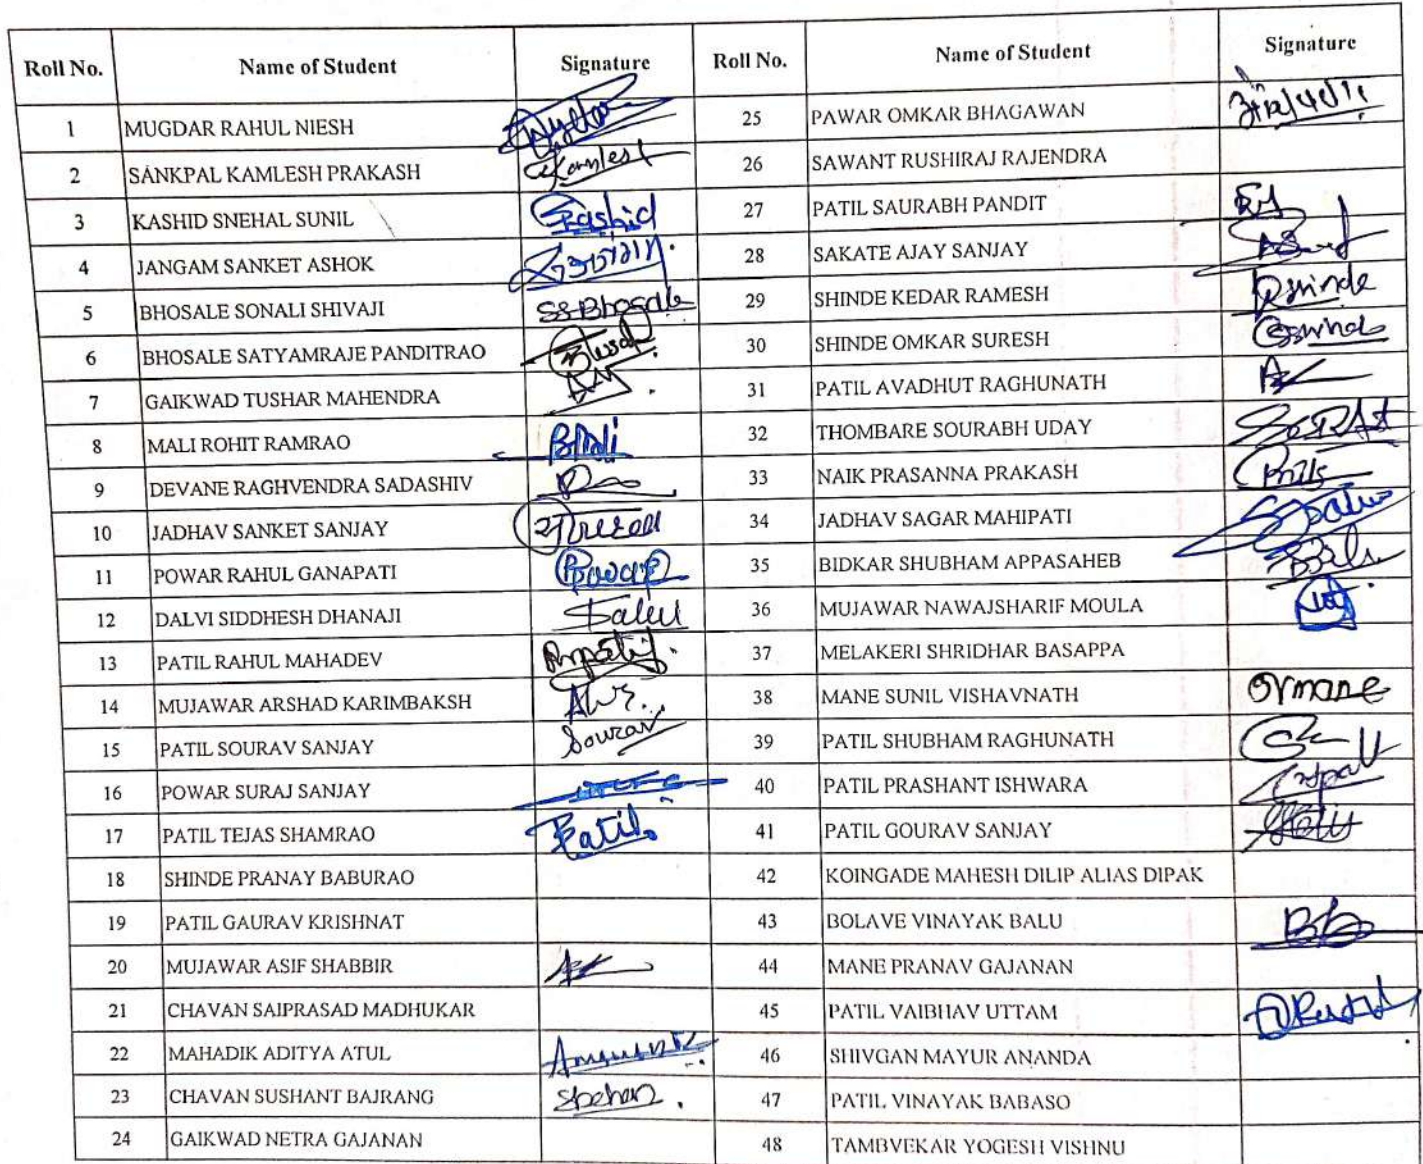 Roll No. Name of Student Signature Roll No. Name of Student Signature
1 MUGDAR RAHUL NIESH 25 PAWAR OMKAR BHAGAWAN
2 SANKPAL KAMLESH PRAKASH 26 SAWANT RUSHIRAJ RAJENDRA
3 KASHID SNEHAL SUNIL Kashid 27 PATIL SAURABH PANDIT
4 JANGAM SANKET ASHOK 28 SAKATE AJAY SANJAY
5 BHOSALE SONALI SHIVAJI SSBhosale 29 SHINDE KEDAR RAMESH
6 BHOSALE SATYAMRAJE PANDITRAO 30 SHINDE OMKAR SURESH
7 GAIKWAD TUSHAR MAHENDRA 31 PATIL AVADHUT RAGHUNATH
8 MALI ROHIT RAMRAO 32 THOMBARE SOURABH UDAY
9 DEVANE RAGHVENDRA SADASHIV 33 NAIK PRASANNA PRAKASH
10 JADHAV SANKET SANJAY 34 JADHAV SAGAR MAHIPATI
11 POWAR RAHUL GANAPATI 35 BIDKAR SHUBHAM APPASAHEB
12 DALVI SIDDHESH DHANAJI 36 MUJAWAR NAWAJSHARIF MOULA
13 PATIL RAHUL MAHADEV 37 MELAKERI SHRIDHAR BASAPPA
14 MUJAWAR ARSHAD KARIMBAKSH 38 MANE SUNIL VISHAVNATH
15 PATIL SOURAV SANJAY Sourav 39 PATIL SHUBHAM RAGHUNATH
16 POWAR SURAJ SANJAY 40 PATIL PRASHANT ISHWARA
17 PATIL TEJAS SHAMRAO Patil 41 PATIL GOURAV SANJAY
18 SHINDE PRANAY BABURAO 42 KOINGADE MAHESH DILIP ALIAS DIPAK
19 PATIL GAURAV KRISHNAT 43 BOLAVE VINAYAK BALU
20 MUJAWAR ASIF SHABBIR 44 MANE PRANAV GAJANAN
21 CHAVAN SAIPRASAD MADHUKAR 45 PATIL VAIBHAV UTTAM
22 MAHADIK ADITYA ATUL 46 SHIVGAN MAYUR ANANDA
23 CHAVAN SUSHANT BAJRANG 47 PATIL VINAYAK BABASO
24 GAIKWAD NETRA GAJANAN 48 TAMBVEKAR YOGESH VISHNU